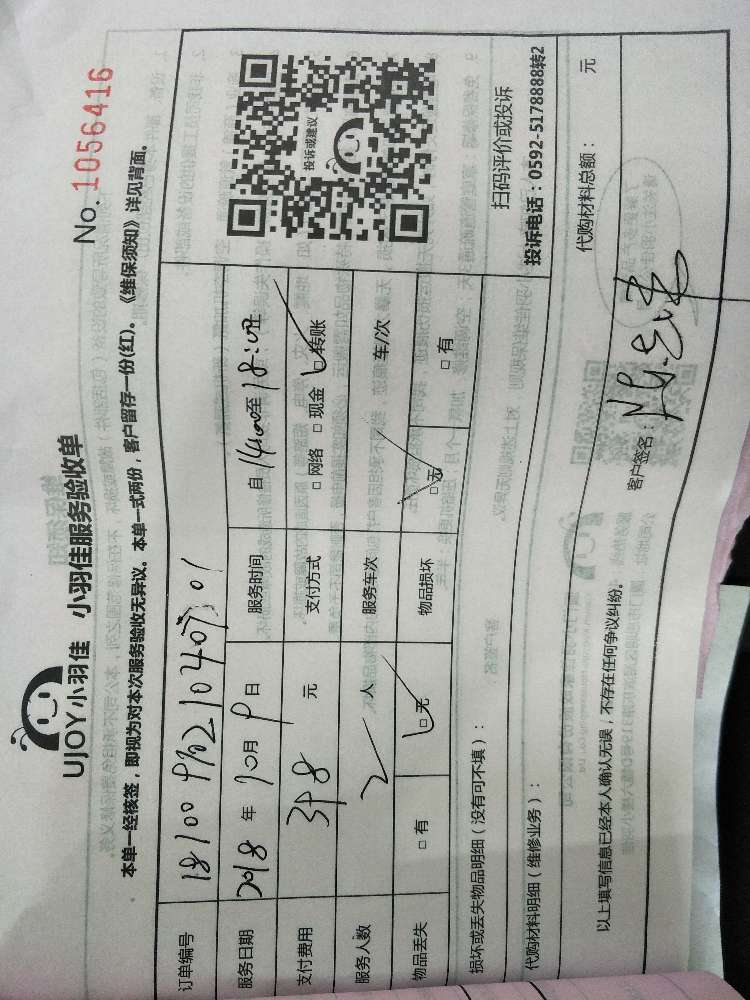 UJOY小羽佳 小羽佳服务验收单
No. 1056416
本单一经核签，即视为对本次服务验收无异议。本单一式两份，客户留存一份(红)。《维保须知》详见背面。
订单编号
服务日期 2018 年 10 月 9 日 服务时间 自 14:00 至 18:00
支付费用 398 元 支付方式 □ 网络 □ 现金 □ 转账
服务人数 2 人 服务车次 车/次
物品丢失 □ 有 □ 无 物品损坏 □ 无 □ 有
投诉或建议
扫码评价或投诉
投诉电话：0592-5178888转2
损坏或丢失物品明细（没有可不填）：
代购材料明细（维修业务）：
代购材料总额： 元
以上填写信息已经本人确认无误，不存在任何争议纠纷。
客户签名：